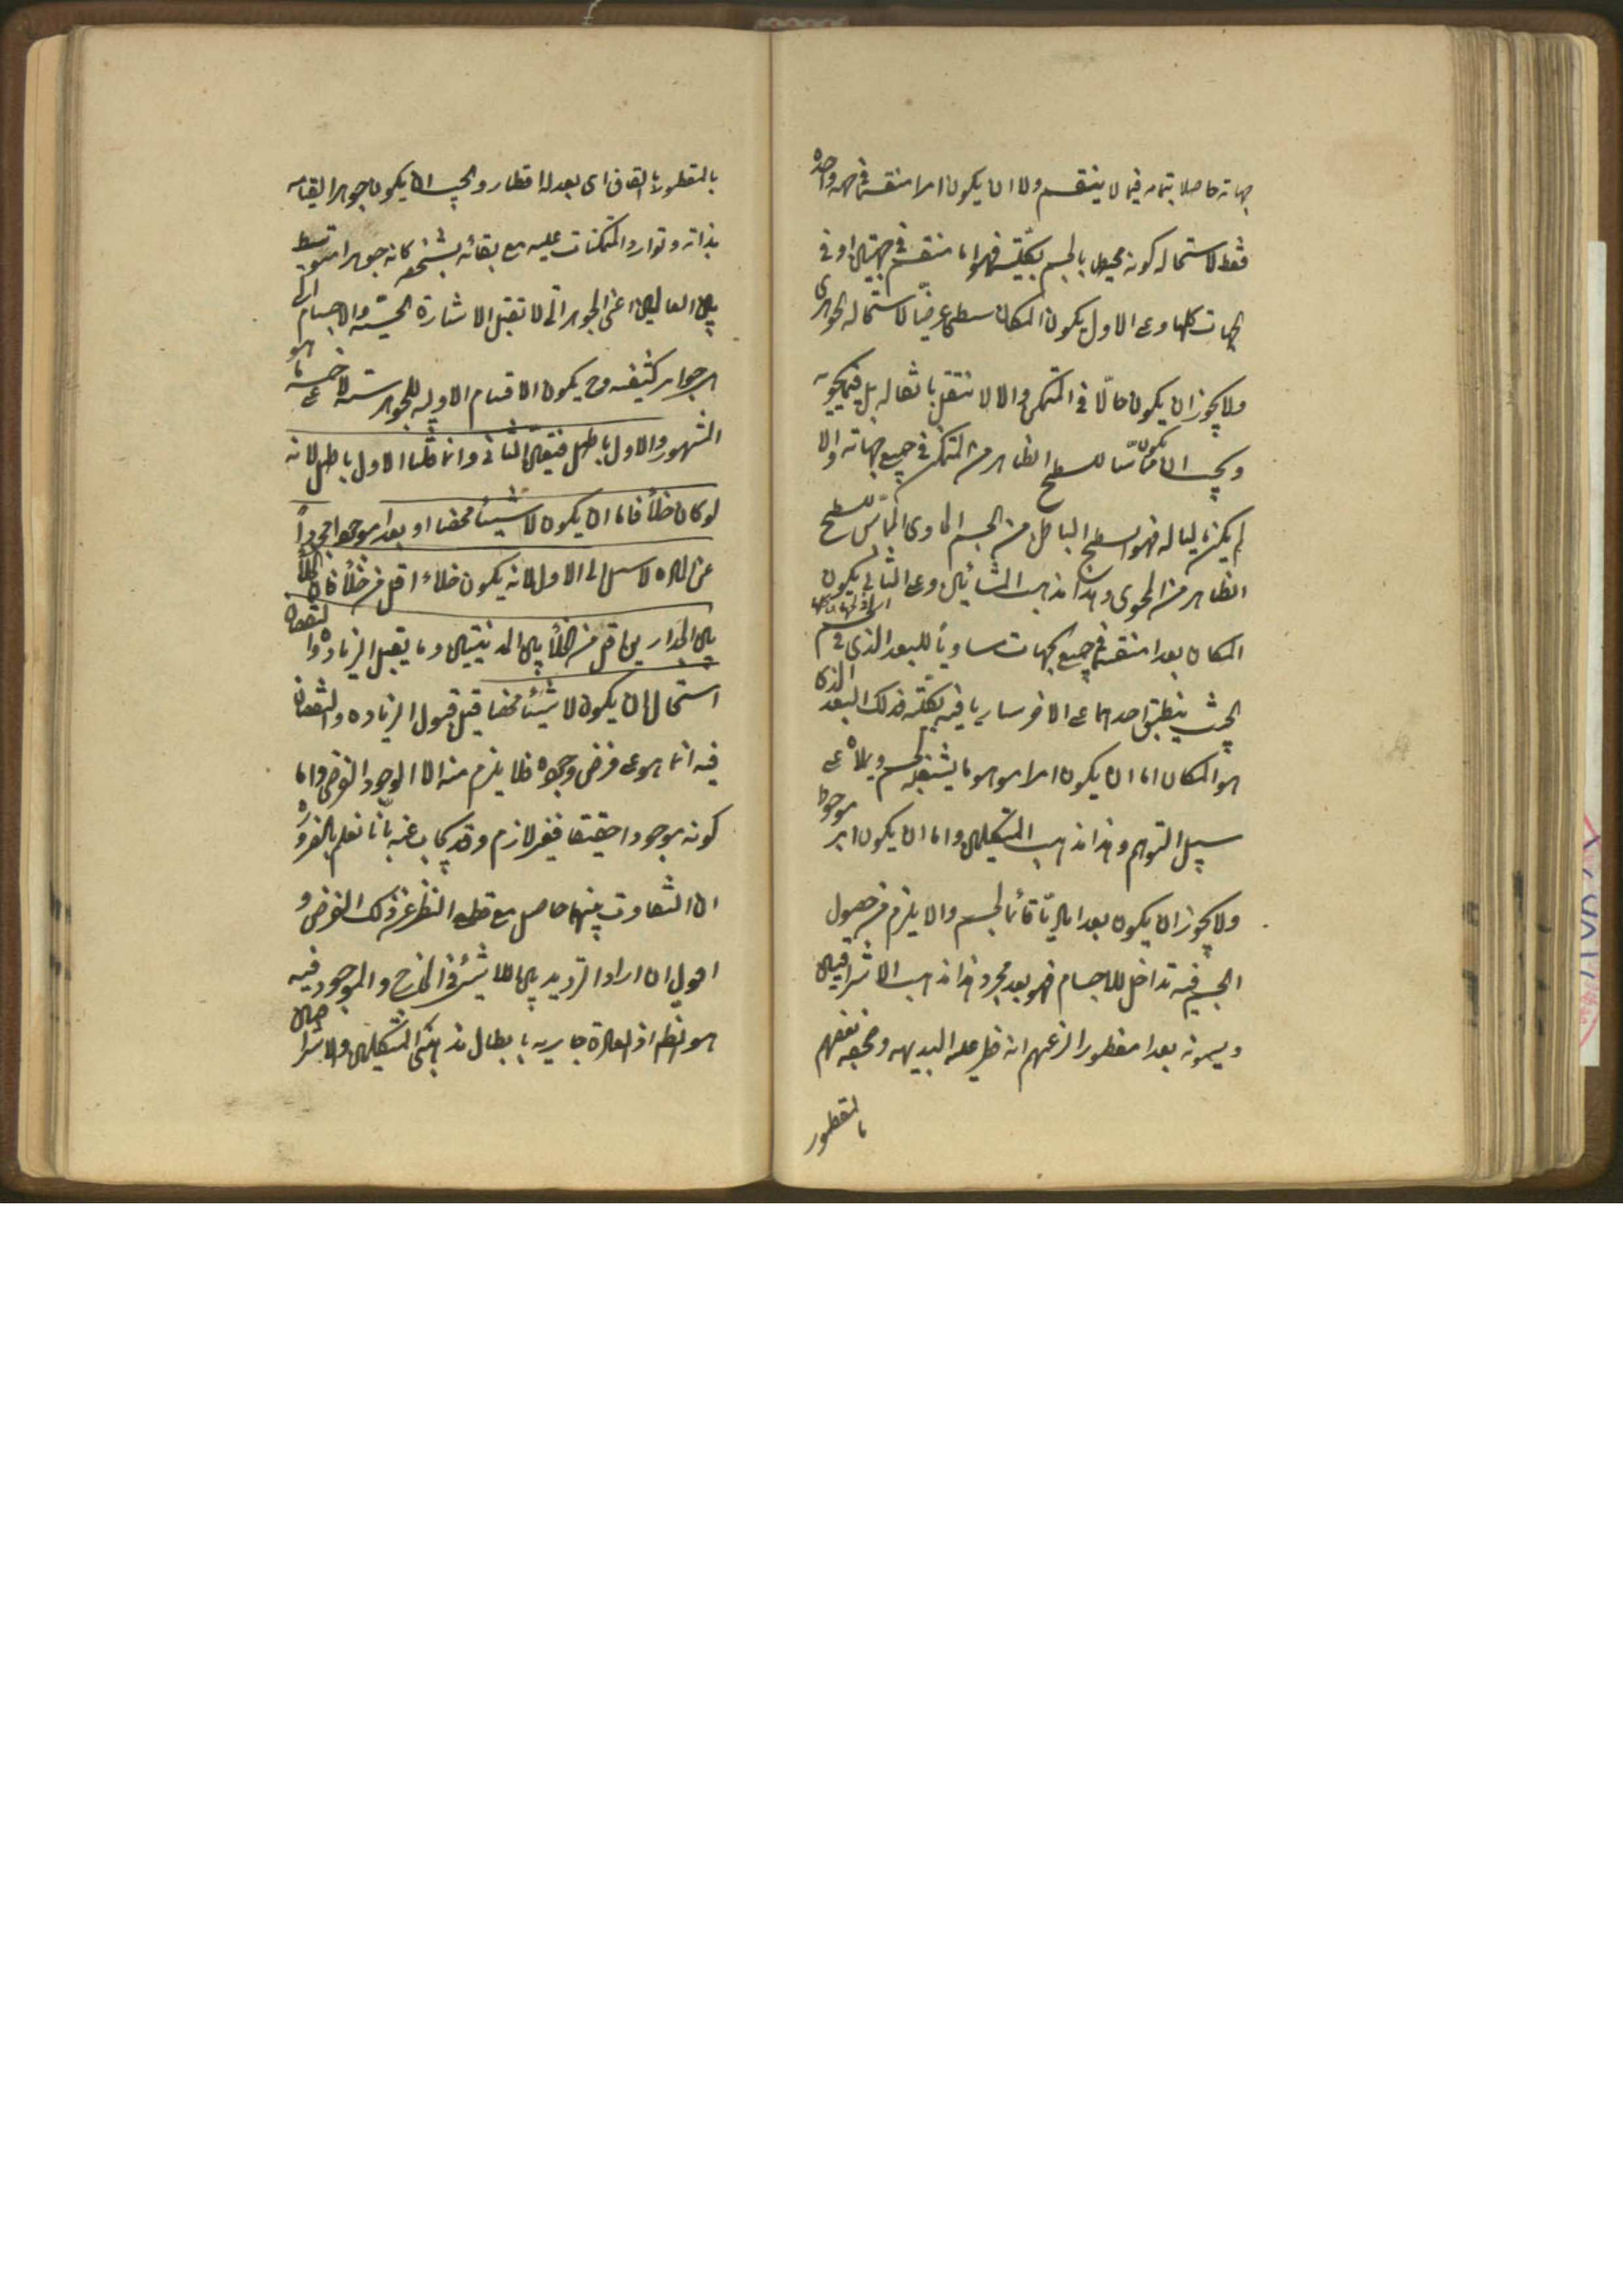 جهاته حاصلا بتمامه فيما لا ينقسم ولا ان يكون امرا منقسما في جهة واحدة
فقط لاستحالة كونه محيطا بالجسم بكليته فهو اما منقسم في جهتين او في
الجهات كلها وعلى الاول يكون المكان سطحا عرضيا لاستحالة الجوهرى
ولا يجوز ان يكون حالّا في المتمكن والا لانتقل بانتقاله بل فيما يحويه
ويجب ان يكون مماسّا للسطح الظاهر من المتمكن في جميع جهاته والا
لم يكن مماليا له فهو السطح الباطن من الجسم الحاوى المماسّ للسطح
الظاهر من المحوى وهذا مذهب المشائين وعلى الثانى يكون
المكان بعدا منقسما في جميع الجهات مساويا للبعد الذى في الجسم
بحيث ينطبق احدهما على الاخر ساريا فيه بكليته فذلك البعد الذى
هو المكان اما ان يكون امرا موهوما يشغله الجسم ويملأه على
سبيل التوهم وهذا مذهب المتكلمين واما ان يكون امرا موجودا
ولا يجوز ان يكون بعدا ماديّا قائما بالجسم والا يلزم من حصول
الجسم فيه تداخل الاجسام فهو بعد مجرد وهذا مذهب الاشراقيين
ويسمونه بعدا مفطورا لزعمهم انه فطر عليه البديهه وصحفه بعضهم
بالمقطور
بالمقطور بالقاف اى بعد له اقطار ويجب ان يكون جوهرا لقيامه
بذاته وتوارد المتمكنات عليه مع بقائه بشخصه فكانه جوهر متوسط
بين العالمين اعنى الجواهر التى لا تقبل الاشارة الحسية والاجسام التى
هى جواهر كثيفه وح يكون الاقسام الاوليه للجوهر ستة لا خمسة على ما هو
المشهور والاول باطل فتعين الثانى وانما قلنا الاول باطل لانه
لو كان خلأ فاما ان يكون لا شيئا محضا او بعدا موجودا مجردا
عن المادة لا سبيل الى الاول لانه يكون خلاء اقل من خلأ فان الخلأ
بين الجدارين اقل من الخلأ بين المدينتين وما يقبل الزيادة والنقصان
استحال ان يكون لا شيئا محضا قيل قبول الزيادة والنقصان
فيه انما هو على فرض وجوده فلا يلزم منه الا الوجود الفرضى واما
كونه موجودا حقيقة فغير لازم وقد يجاب عنه بانّا نعلم بالضرورة
ان التفاوت بينهما حاصل مع قطع النظر عن ذلك الفرض و
اقول ان اراد الترديد بين اللا شئ فى الخارج والموجود فيه
هو الظاهر اذ العادة جارية بابطال مذهبى المتكلمين والاشراقيين